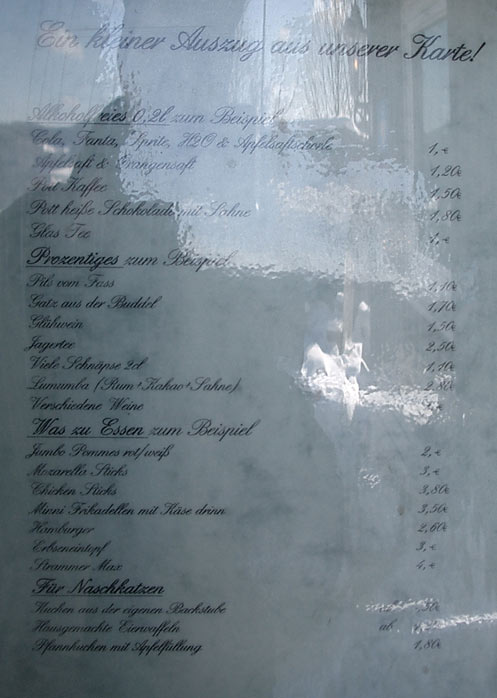 Ein kleiner Auszug aus unserer Karte!
Alkoholfreies 0,2l zum Beispiel
Cola, Fanta, Sprite, H2O & Apfelsaftschorle 1,-€
Apfelsaft & Orangensaft 1,20€
Pott Kaffee 1,50€
Pott heiße Schokolade mit Sahne 1,80€
Glas Tee 1,-€
Prozentiges zum Beispiel
Pils vom Fass 1,10€
Gatz aus der Buddel 1,70€
Glühwein 1,50€
Jagertee 2,50€
Viele Schnäpse 2cl 1,10€
Lumumba (Rum+Kakao+Sahne) 2,80€
Verschiedene Weine
Was zu Essen zum Beispiel
Jumbo Pommes rot/weiß 2,-€
Mozarella Sticks 3,-€
Chicken Sticks 3,80€
Minni Frikadellen mit Käse drinn 3,50€
Hamburger 2,60€
Erbseneintopf 3,-€
Strammer Max 4,-€
Für Naschkatzen
Kuchen aus der eigenen Backstube
Hausgemachte Eierwaffeln ab
Pfannkuchen mit Apfelfüllung 1,80€